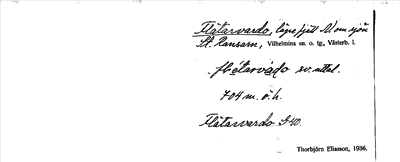 Flåtarvardo, lägre fjäll N om sjön
St. Ransarn, Vilhelmina sn. o. tg., Västerb. l.
flåtarvaɗo sv. uttal.
704 m. ö. h.
Flåtarvardo GK.
Thorbjörn Eliasson, 1936.